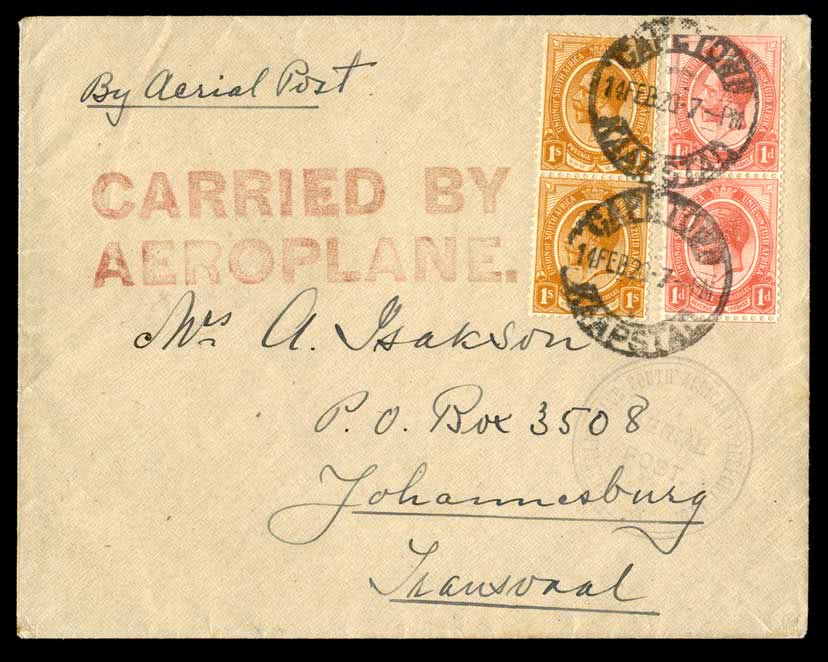 By Aerial Post.
CARRIED BY
AEROPLANE.
Mrs A. Isakson
P. O. Box 3508
Johannesburg
Transvaal
UNION OF SOUTH AFRICA
1s
POSTAGE
UNIE VAN ZUID AFRIKA
1d 1d
UNION OF SOUTH AFRICA
1s 1s
UNIE VAN ZUID AFRIKA
1d 1d
CAPETOWN
14 FEB 20 · 7 — PM
KAAPSTAD
CAPETOWN
14 FEB 20 · 7 — PM
KAAPSTAD
SOUTH AFRICAN
AERIAL
POST